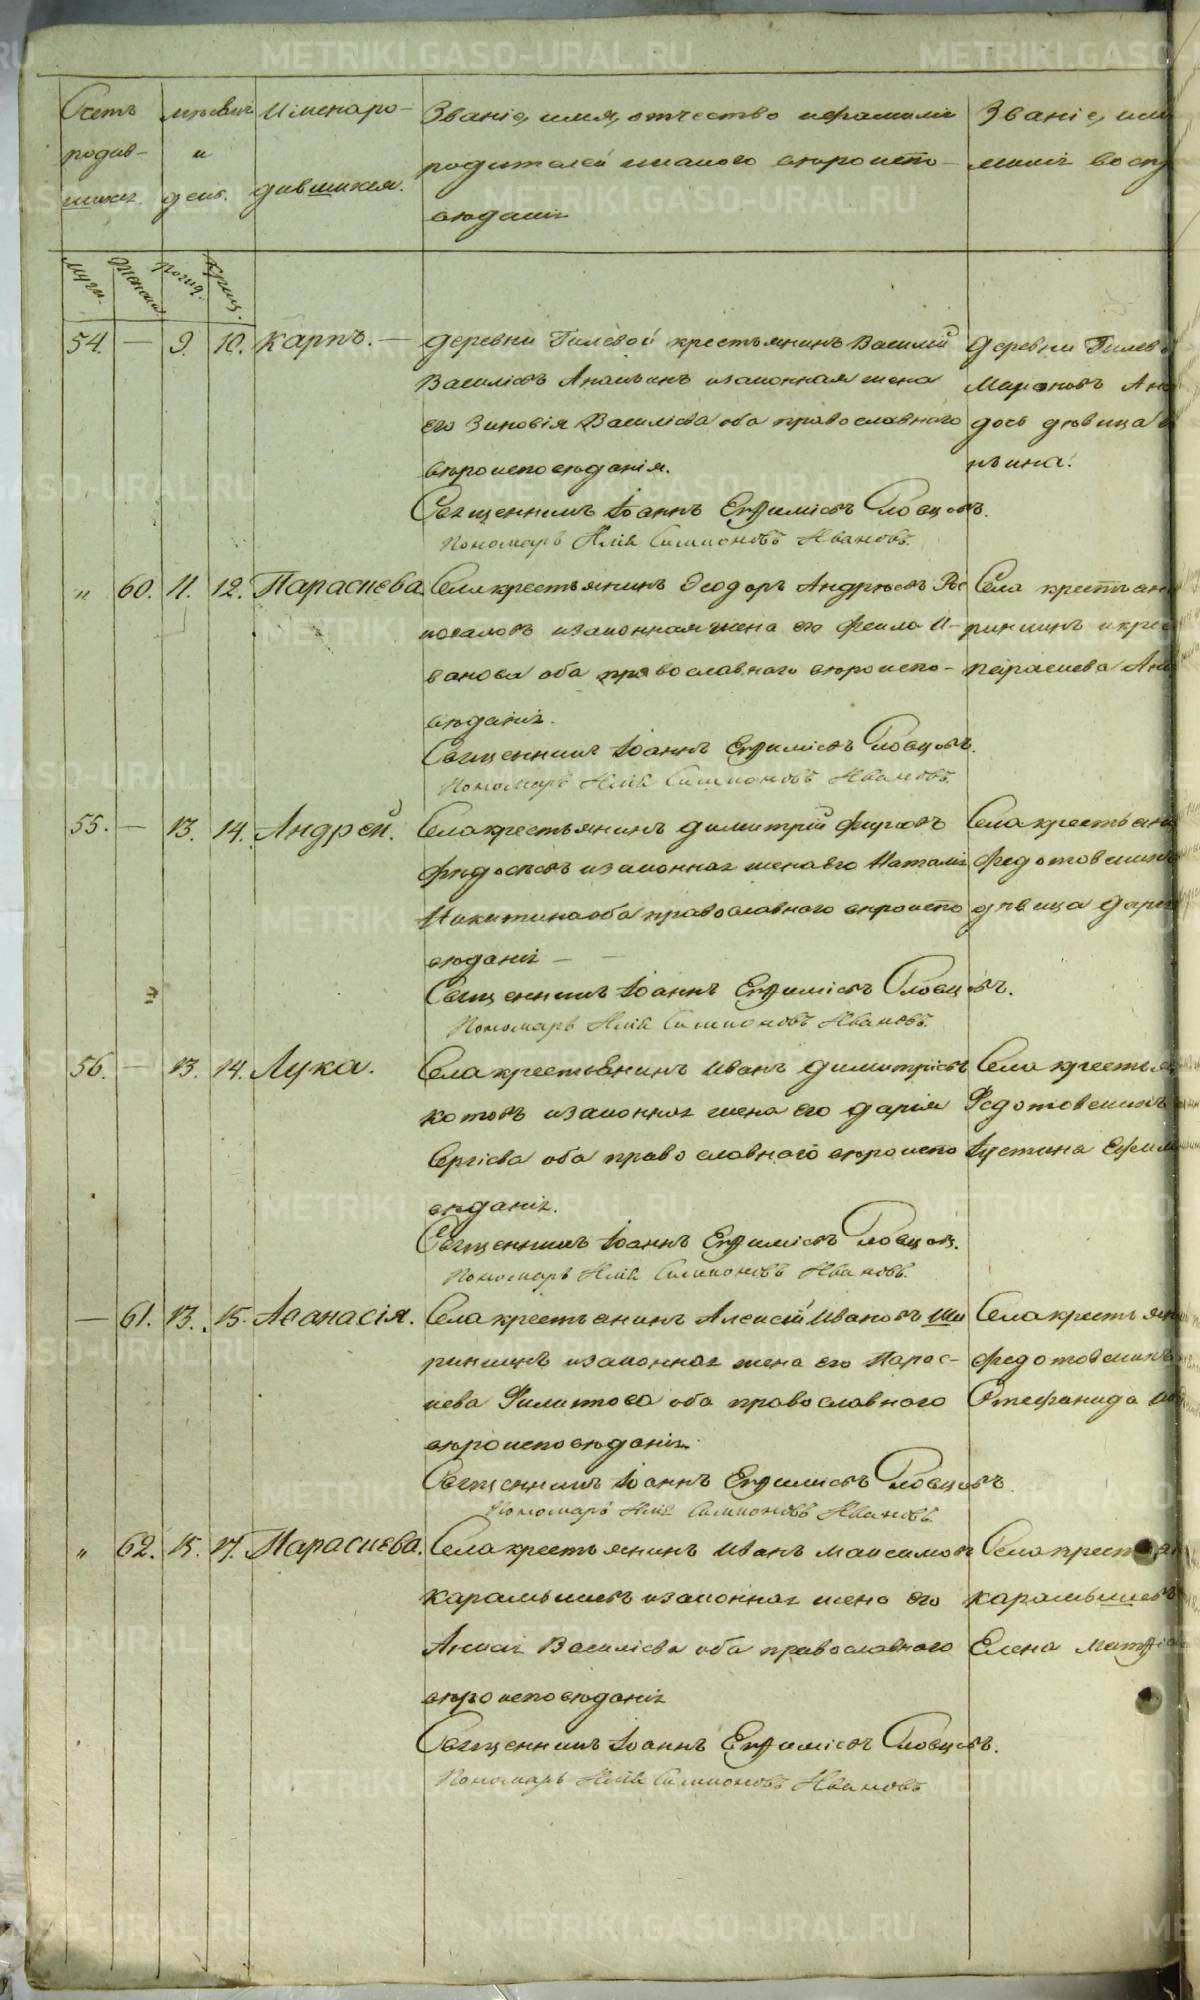 Счетъ
родив-
шихся.
мѣсяцъ
и
день.
Имена ро-
дившихся.
Званіе, имя, отчество и фамилія
родителей и какого вѣроиспо-
вѣданія
Званіе, имя
воспр
мужи.
женска
рожд.
крещ.
54. — 9. 10. Карпъ. —
деревни Гилевой крестьянинъ Василій
Василіевъ и законная жена
его Зиновія Василіева оба православнаго
вѣроисповѣданія.
Священникъ Іоаннъ Евфиміевъ Словцовъ.
Пономарь Симионовъ Ивановъ.
деревни Гилево
дось дѣвица
ньина.
„ 60. 11. 12. Параскева.
Села крестьянинъ Ѳеодоръ Андрѣевъ
и законная жена его Фекла И-
ванова оба православнаго вѣроиспо-
вѣданія.
Священникъ Іоаннъ Евфиміевъ Словцовъ.
Пономарь Симионовъ Ивановъ.
Села крестьян
и крес
Параскева
55. — 13. 14. Андрей.
Села крестьянинъ Димитрій Фирсовъ
и законная жена его Наталія
Никитина оба православнаго вѣроиспо
вѣданія —
Священникъ Іоаннъ Евфиміевъ Словцовъ.
Пономарь Симионовъ Ивановъ.
Села крестьяни
Федотовскихъ
дѣвица Дарія
56. — 13. 14. Лука.
Села крестьянинъ Иванъ Димитріевъ
Котовъ и законная жена его Дарія
Сергіева оба православнаго вѣроиспо
вѣданія.
Священникъ Іоаннъ Евфиміевъ Словцовъ.
Пономарь Симионовъ Ивановъ.
Села крестья
Федотовскихъ
Іустина Ефим
— 61. 13. 15. Аѳанасія.
Села крестьянинъ Алексій Ивановъ Ши
ринкинъ и законная жена его Парас-
кева Филипова оба православнаго
вѣроисповѣданія.
Священникъ Іоаннъ Евфиміевъ Словцовъ.
Пономарь Симионовъ Ивановъ
Села крестьян
Федотовскихъ
Стефанида
„ 62. 15. 17. Параскева.
Села крестьянинъ Иванъ Максимовъ
Карамышевъ и законная жена его
Василіева оба православнаго
вѣроисповѣданія
Священникъ Іоаннъ Евфиміевъ Словцовъ.
Пономарь Симионовъ Ивановъ
Села крестьян
Карамышевъ
Елена Матфіе
METRIKI.GASO-URAL.RU